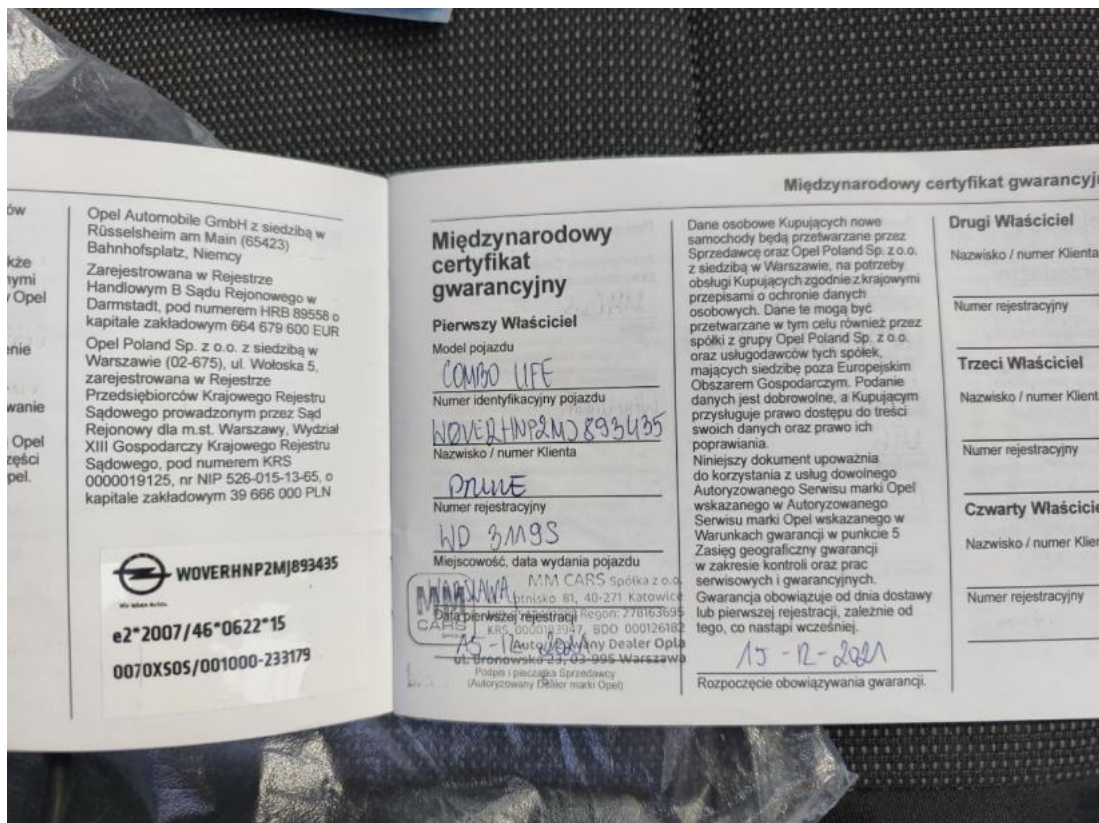 ów
kże
nymi
Opel
enie
wanie
Opel
zęści
pel.
Opel Automobile GmbH z siedzibą w
Rüsselsheim am Main (65423)
Bahnhofsplatz, Niemcy
Zarejestrowana w Rejestrze
Handlowym B Sądu Rejonowego w
Darmstadt, pod numerem HRB 89558 o
kapitale zakładowym 664 679 600 EUR
Opel Poland Sp. z o.o. z siedzibą w
Warszawie (02-675), ul. Wołoska 5,
zarejestrowana w Rejestrze
Przedsiębiorców Krajowego Rejestru
Sądowego prowadzonym przez Sąd
Rejonowy dla m.st. Warszawy, Wydział
XIII Gospodarczy Krajowego Rejestru
Sądowego, pod numerem KRS
0000019125, nr NIP 526-015-13-65, o
kapitale zakładowym 39 666 000 PLN
WOVERHNP2MJ893435
e2*2007/46*0622*15
0070XS0S/001000-233179
Międzynarodowy certyfikat gwarancyj
Międzynarodowy
certyfikat
gwarancyjny
Pierwszy Właściciel
Model pojazdu
COMBO LIFE
Numer identyfikacyjny pojazdu
WOVERHNP2MJ893435
Nazwisko / numer Klienta
Numer rejestracyjny
WD 3119S
Miejscowość, data wydania pojazdu
WARSZAWA
MM CARS Spółka z o.o.
Lotnisko 81, 40-271 Katowice
Regon: 278163695
Data pierwszej rejestracji
KRS 0000183947, BDO 000126182
15-12-2021
Autoryzowany Dealer Opla
ul. Bronowska 23, 03-995 Warszawa
Podpis i pieczątka Sprzedawcy
(Autoryzowany Dealer marki Opel)
MM
CARS
Dane osobowe Kupujących nowe
samochody będą przetwarzane przez
Sprzedawcę oraz Opel Poland Sp. z o.o.
z siedzibą w Warszawie, na potrzeby
obsługi Kupujących zgodnie z krajowymi
przepisami o ochronie danych
osobowych. Dane te mogą być
przetwarzane w tym celu również przez
spółki z grupy Opel Poland Sp. z o.o.
oraz usługodawców tych spółek,
mających siedzibę poza Europejskim
Obszarem Gospodarczym. Podanie
danych jest dobrowolne, a Kupującym
przysługuje prawo dostępu do treści
swoich danych oraz prawo ich
poprawiania.
Niniejszy dokument upoważnia
do korzystania z usług dowolnego
Autoryzowanego Serwisu marki Opel
wskazanego w Autoryzowanego
Serwisu marki Opel wskazanego w
Warunkach gwarancji w punkcie 5
Zasięg geograficzny gwarancji
w zakresie kontroli oraz prac
serwisowych i gwarancyjnych.
Gwarancja obowiązuje od dnia dostawy
lub pierwszej rejestracji, zależnie od
tego, co nastąpi wcześniej.
15-12-2021
Rozpoczęcie obowiązywania gwarancji.
Drugi Właściciel
Nazwisko / numer Klienta
Numer rejestracyjny
Trzeci Właściciel
Nazwisko / numer Klienta
Numer rejestracyjny
Czwarty Właściciel
Nazwisko / numer Klien
Numer rejestracyjny